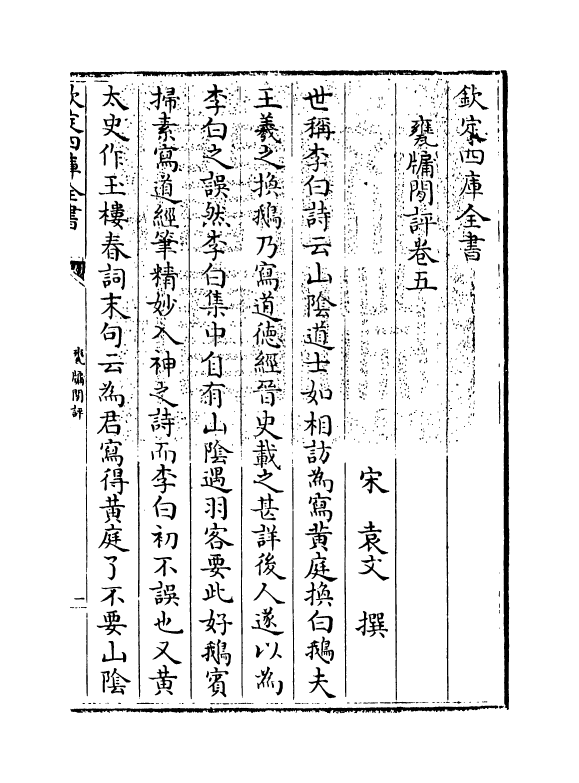 欽定四庫全書
甕牖閒評卷五
宋　袁文　撰
世稱李白詩云山陰道士如相訪為寫黄庭換白鵝夫
王羲之換鵝乃寫道徳經晉史載之甚詳後人遂以為
李白之誤然李白集中自有山陰遇羽客要此好鵝賓
掃素寫道經筆精妙入神之詩而李白初不誤也又黄
太史作玉樓春詞末句云為君寫得黄庭了不要山陰
欽定四庫全書
甕牖閒評
一